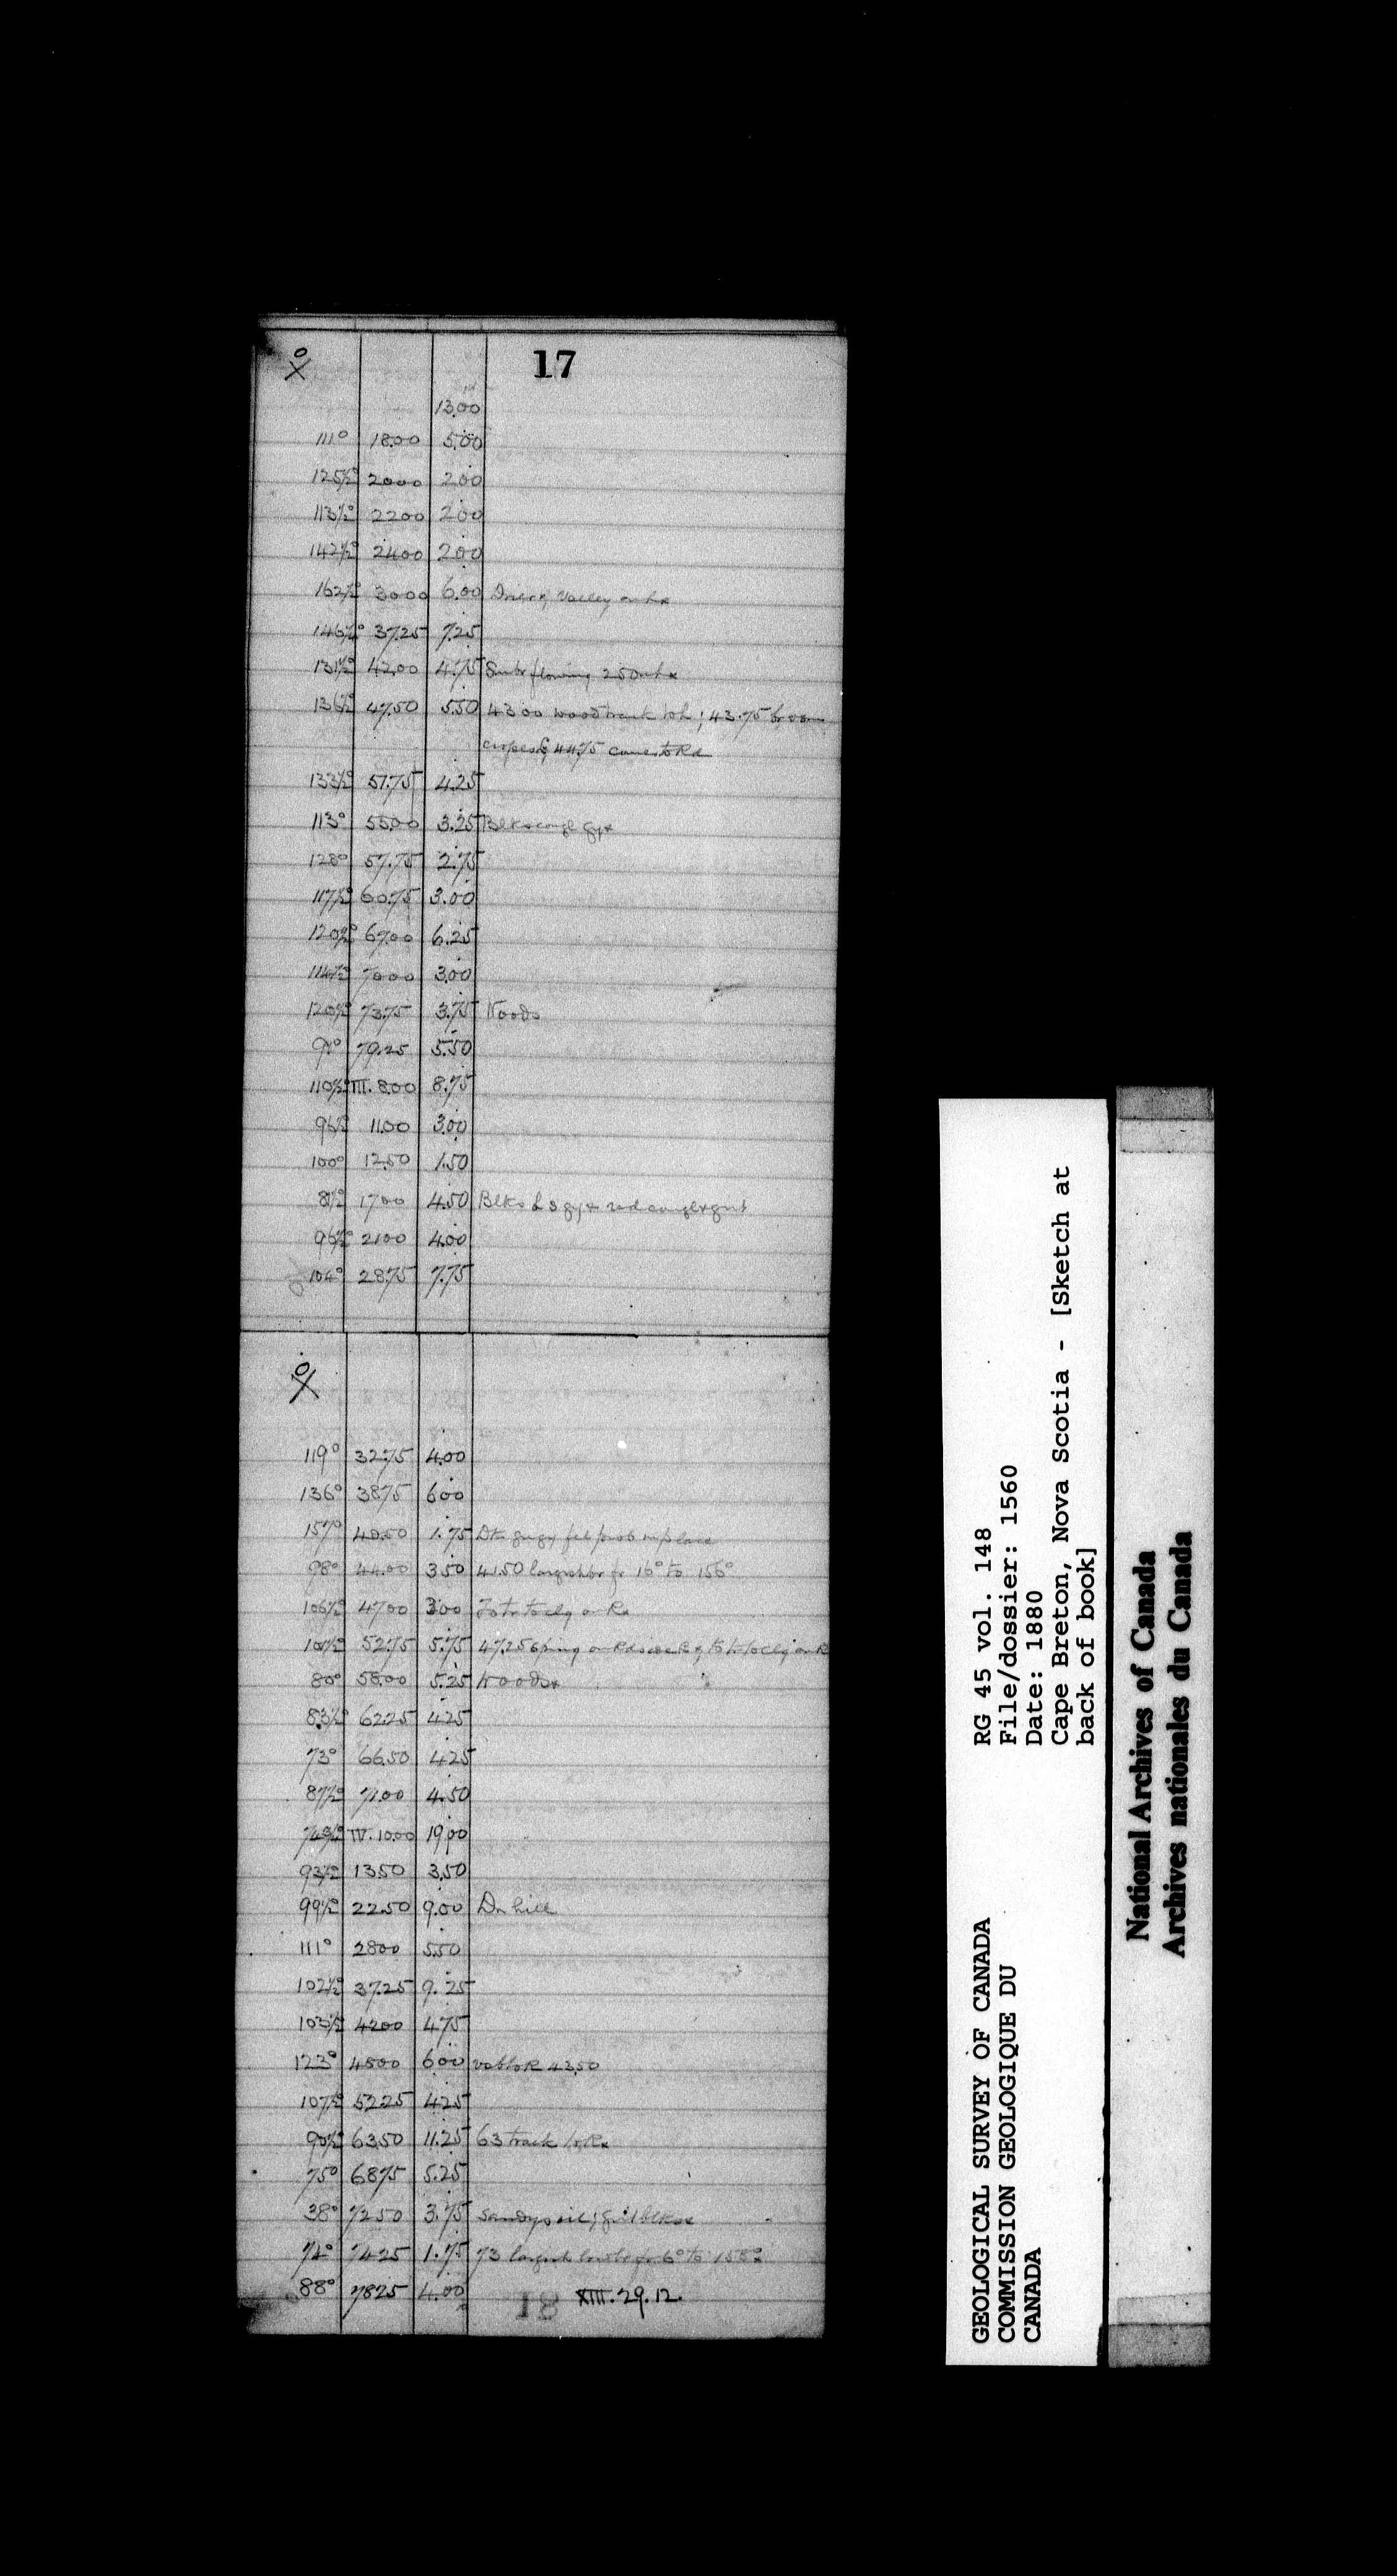 17
13.00
111° 18.00 5.00
125½° 20.00 2.00
113½° 22.00 2.00
142½° 24.00 2.00
162½° 30.00 6.00 valley on
146½° 37.25 7.25
131½° 42.00 4.75 flowing
136½° 47.50 5.50 43.00 wood track to L; 43.75
44.75 comes to Rd
133½° 51.75 4.25
113° 55.00 3.25 Blks congl
128° 57.75 2.75
117½° 60.75 3.00
120½° 67.00 6.25
114½° 70.00 3.00
120½° 73.75 3.75 Woods
91° 79.25 5.50
110½° III. 8.00 8.75
96½° 11.00 3.00
100° 12.50 1.50
81½° 17.00 4.50 Blks red congl
96½° 21.00 4.00
104° 28.75 7.75
119° 32.75 4.00
136° 38.75 6.00
157° 40.50 1.75 Dk fel prob in place
98° 44.00 3.50 41.50 16° to 156°
106½° 47.00 3.00
101½° 52.75 5.75 47.25 spring on
80° 58.00 5.25 Woods
83½° 62.25 4.25
73° 66.50 4.25
87½° 71.00 4.50
74½° IV. 10.00 19.00
93½° 13.50 3.50
99½° 22.50 9.00 Dn hill
111° 28.00 5.50
102½° 37.25 9.25
103½° 42.00 4.75
123° 48.00 6.00 43.50
107½° 52.25 4.25
90½° 63.50 11.25 63 track to R
75° 68.75 5.25
38° 72.50 3.75 Sandy soil;
72° 74.25 1.75 73 6° to 158°
88° 78.25 4.00
XIII. 29. 12.
18
GEOLOGICAL SURVEY OF CANADA
COMMISSION GEOLOGIQUE DU
CANADA
RG 45 vol. 148
File/dossier: 1560
Date: 1880
Cape Breton, Nova Scotia - [Sketch at
back of book]
National Archives of Canada
Archives nationales du Canada